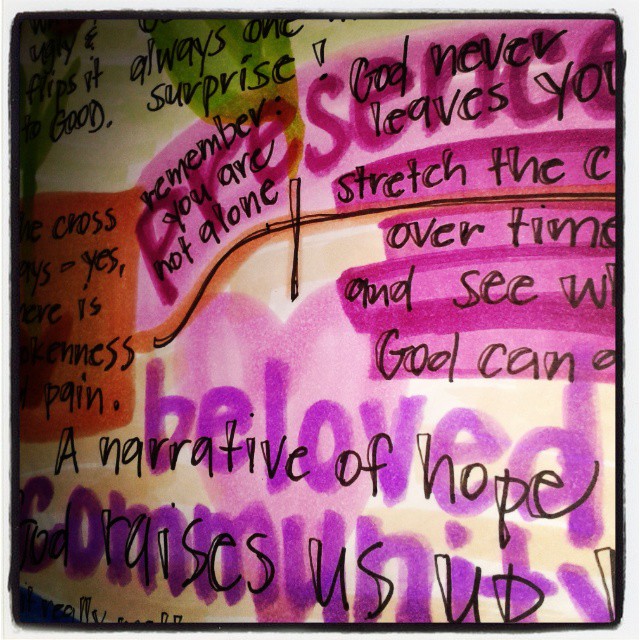 ugly &
flips it
to GOOD.
always one
surprise!
God never
leaves you
presence
remember:
you are
not alone
stretch the c
over time
and see wh
God can
he cross
ays - yes,
ere is
okenness
pain.
beloved
A narrative of hope
community
God raises us up